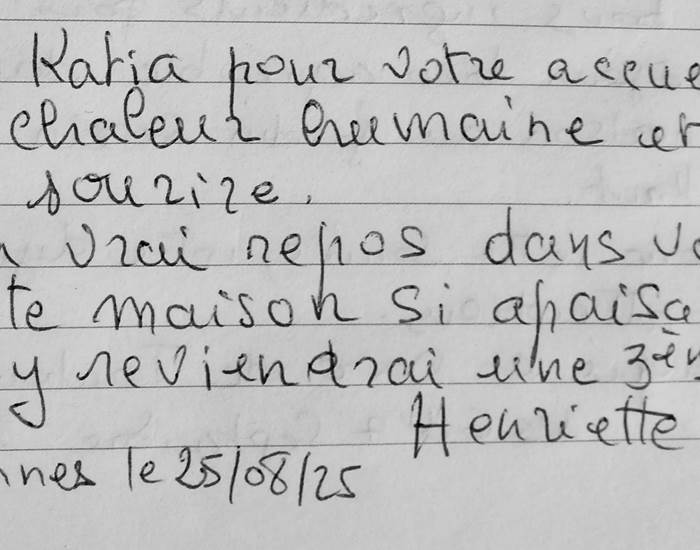 Katia pour votre accue
chaleur humaine et
sourire.
vrai repos dans vo
te maison si apaisa
y reviendrai une 3èm
Henriette
nnes le 25/08/25